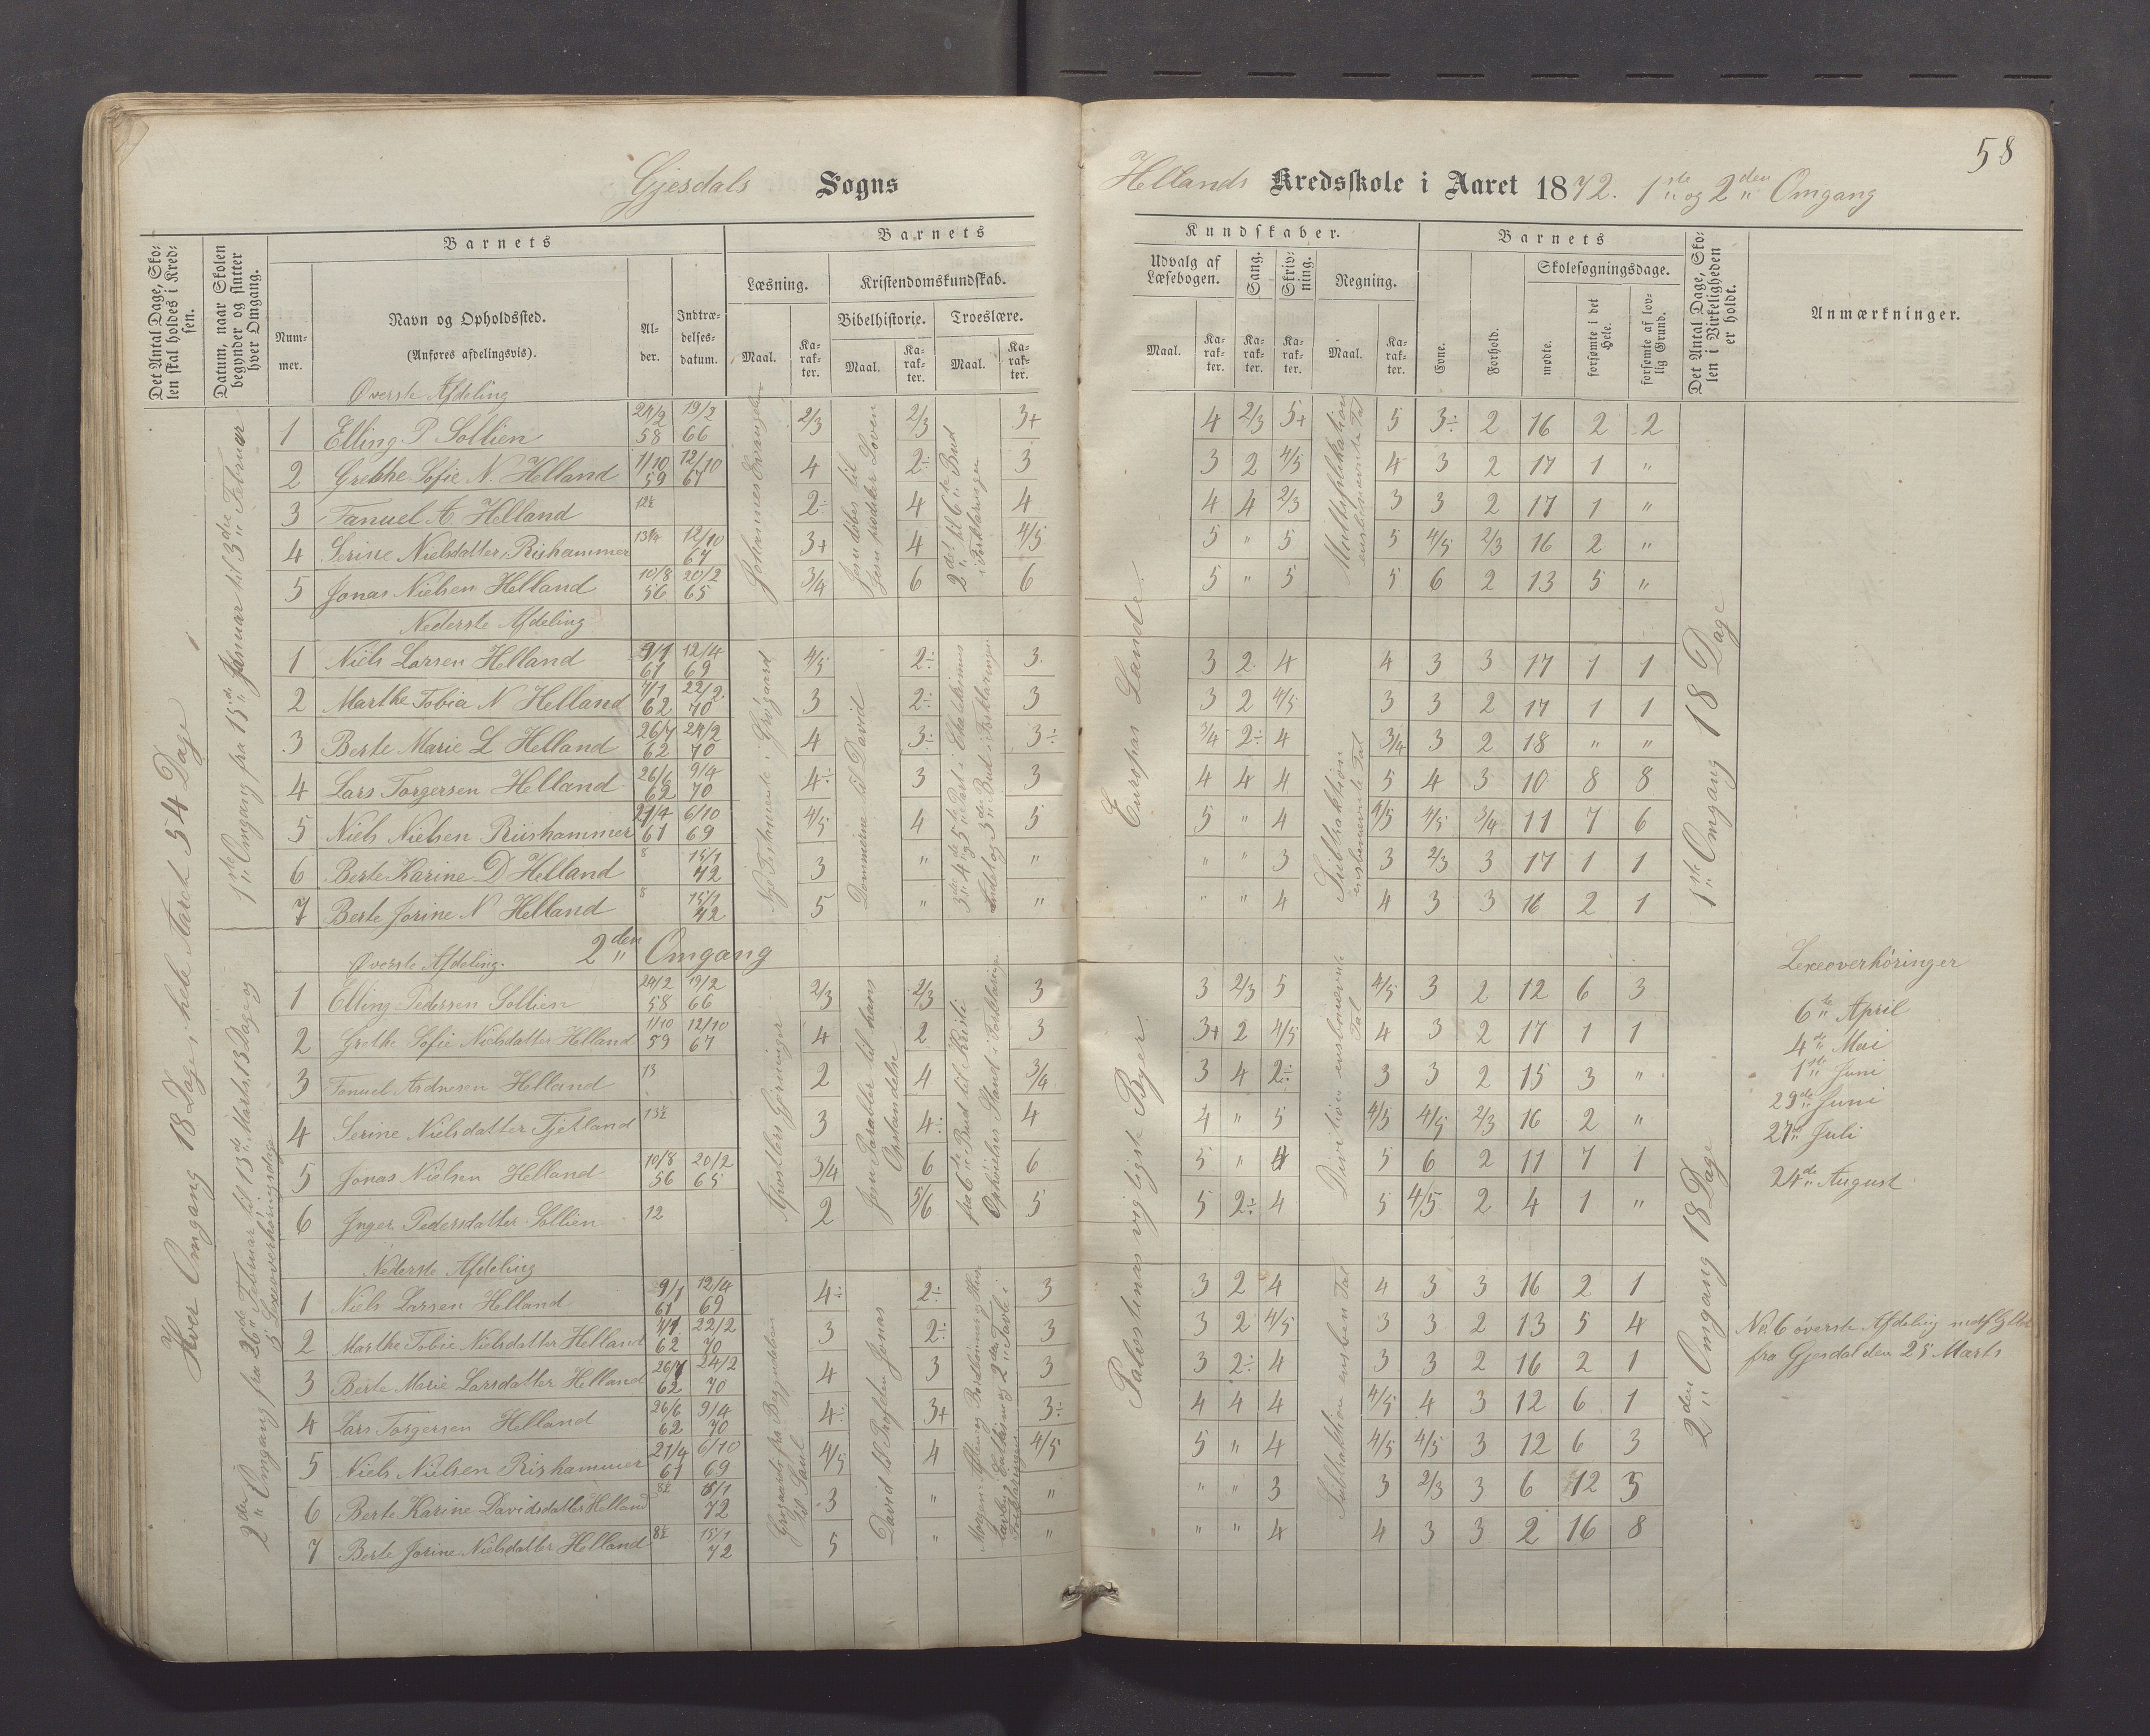 58
Gjesdals Sogns Hellands Kredsskole i Aaret 1872. 1ste og 2den Omgang
Det Antal Dage, Skolen skal holdes i Kredsen.
Datum, naar Skolen begynder og slutter hver Omgang.
Barnets
Barnets
Kundskaber.
Barnets
Det Antal Dage, Skolen i Virkeligheden er holdt.
Anmærkninger.
Nummer.
Navn og Opholdssted.
(Anføres afdelingsvis).
Alder.
Indtrædelsesdatum.
Læsning.
Kristendomskundskab.
Bibelhistorie.
Troeslære.
Udvalg af Læsebogen.
Sang.
Skrivning.
Regning.
Evne.
Forhold.
Skolesøgningsdage.
mødte.
forsømte i det Hele.
forsømte af lovlig Grund.
Maal. Karakter. Maal. Karakter. Maal. Karakter. Maal. Karakter. Karakter. Karakter. Maal. Karakter.
Hver Omgang 18 Dage, hele Aaret 54 Dage
1ste Omgang fra 15de Januar til 3die Februar
Øverste Afdeling
1 Elling P Sollien 24/2 58 19/2 66 2/3 2/3 3+ 4 2/3 5+ 5 3÷ 2 16 2 2
2 Grethe Sofie N. Helland 1/10 59 12/10 67 4 2÷ 3 3 2 4/5 4 3 2 17 1 "
3 Tanuel A. Helland 12½ 2÷ 4 4 4 4 2/3 3 3 2 17 1 "
4 Serine Nielsdatter Rishammer 13¼ 12/10 67 3+ 4 4/5 5 " 5 5 4/5 2/3 16 2 "
5 Jonas Nielsen Helland 10/8 56 20/2 65 3/4 6 6 5 " 5 5 6 2 13 5 "
Johannes Evangelium
Jesu døbes til Jesu prædiker Loven
2det til 6te Bud i Forklaringen
Multiplikation enesbenævnte Tal
Nederste Afdeling
1 Niels Larsen Helland 9/1 61 12/4 69 4/5 2÷ 3 3 2 4 4 3 3 17 1 1
2 Marthe Tobia N Helland 7/1 62 22/2 70 3 2÷ 3 3 2 4/5 3 3 2 17 1 1
3 Berte Marie L Helland 26/7 62 24/2 70 4 3÷ 3÷ 3/4 2÷ 4 3/4 3 2 18 " "
4 Lars Torgersen Helland 26/6 62 9/4 70 4÷ 3 3 4 4 4 5 4 3 10 8 8
5 Niels Nielsen Riishammer 21/4 61 6/10 69 4/5 4 5 5 " 4 4/5 4/5 3/4 11 7 6
6 Berte Karine D Helland 8 15/1 72 3 " " " " 3 3 2/3 3 17 1 1
7 Berte Jorine N Helland 8 15/1 72 5 " " " " 4 4 3 3 16 2 1
Dommerne til David
Europas Lande.
1ste Omgang 18 Dage
2den Omgang
2den Omgang fra 26de Februar til 13de Marts, 13 Dage og 5 Lexeoverhøringsdage
Øverste Afdeling.
1 Elling Pedersen Sollien 24/2 58 19/2 66 2/3 2/3 3 3 2/3 5 4/5 3 2 12 6 3
2 Grethe Sofie Nielsdatter Helland 1/10 59 12/10 67 4 2 3 3+ 2 4/5 4 3 2 17 1 1
3 Tanuel Andresen Helland 13 2 4 3/4 3 4 2÷ 3 3 2 15 3 "
4 Serine Nielsdatter Tjetland 13½ 3 4÷ 4 4 " 5 4/5 4/5 2/3 16 2 "
5 Jonas Nielsen Helland 10/8 56 20/2 65 3/4 6 6 5 " 4 5 6 2 11 7 1
6 Inger Pedersdatter Sollien 12 2 5/6 5 5 2÷ 4 5 4/5 2 4 1 "
Apostlers Gjerninger
Jesu Parabler til hans Opstandelse
fra 6te Bud til Kristi Ophøielses Stand i Forklaringen
Division enesbenævnte Tal
Nederste Afdeling
1 Niels Larsen Helland 9/1 61 12/4 69 4÷ 2÷ 3 3 2 4 4 3 3 16 2 1
2 Marthe Tobie Nielsdatter Helland 7/1 62 22/2 70 3 2÷ 3 3 2 4/5 3 3 2 13 5 4
3 Berte Marie Larsdatter Helland 26/7 62 24/2 70 4 3 3 3 2÷ 4 3 3 2 16 2 1
4 Lars Torgersen Helland 26/6 62 9/4 70 4÷ 3+ 3÷ 4 4 4 4/5 4 3 12 6 1
5 Niels Nielsen Rishammer 21/4 61 6/10 69 4/5 4 4/5 5 " 4 4/5 4/5 3 12 6 3
6 Berte Karine Davidsdatter Helland 8½ 15/1 72 3 " " " " 3 3 2/3 3 6 12 5
7 Berte Jorine Nielsdatter Helland 8½ 15/1 72 5 " " " " 4 4 3 3 2 16 8
fra Begyndelsen til Saul
David til Profeten Jonas
Palæstinas vigtigste Byer.
2den Omgang 18 Dage
Lexeoverhøringer
6te April
4de Mai
1ste Juni
29de Juni
27de Juli
24de August
No. 6 øverste Afdeling
fra Gjesdal den 25 Marts